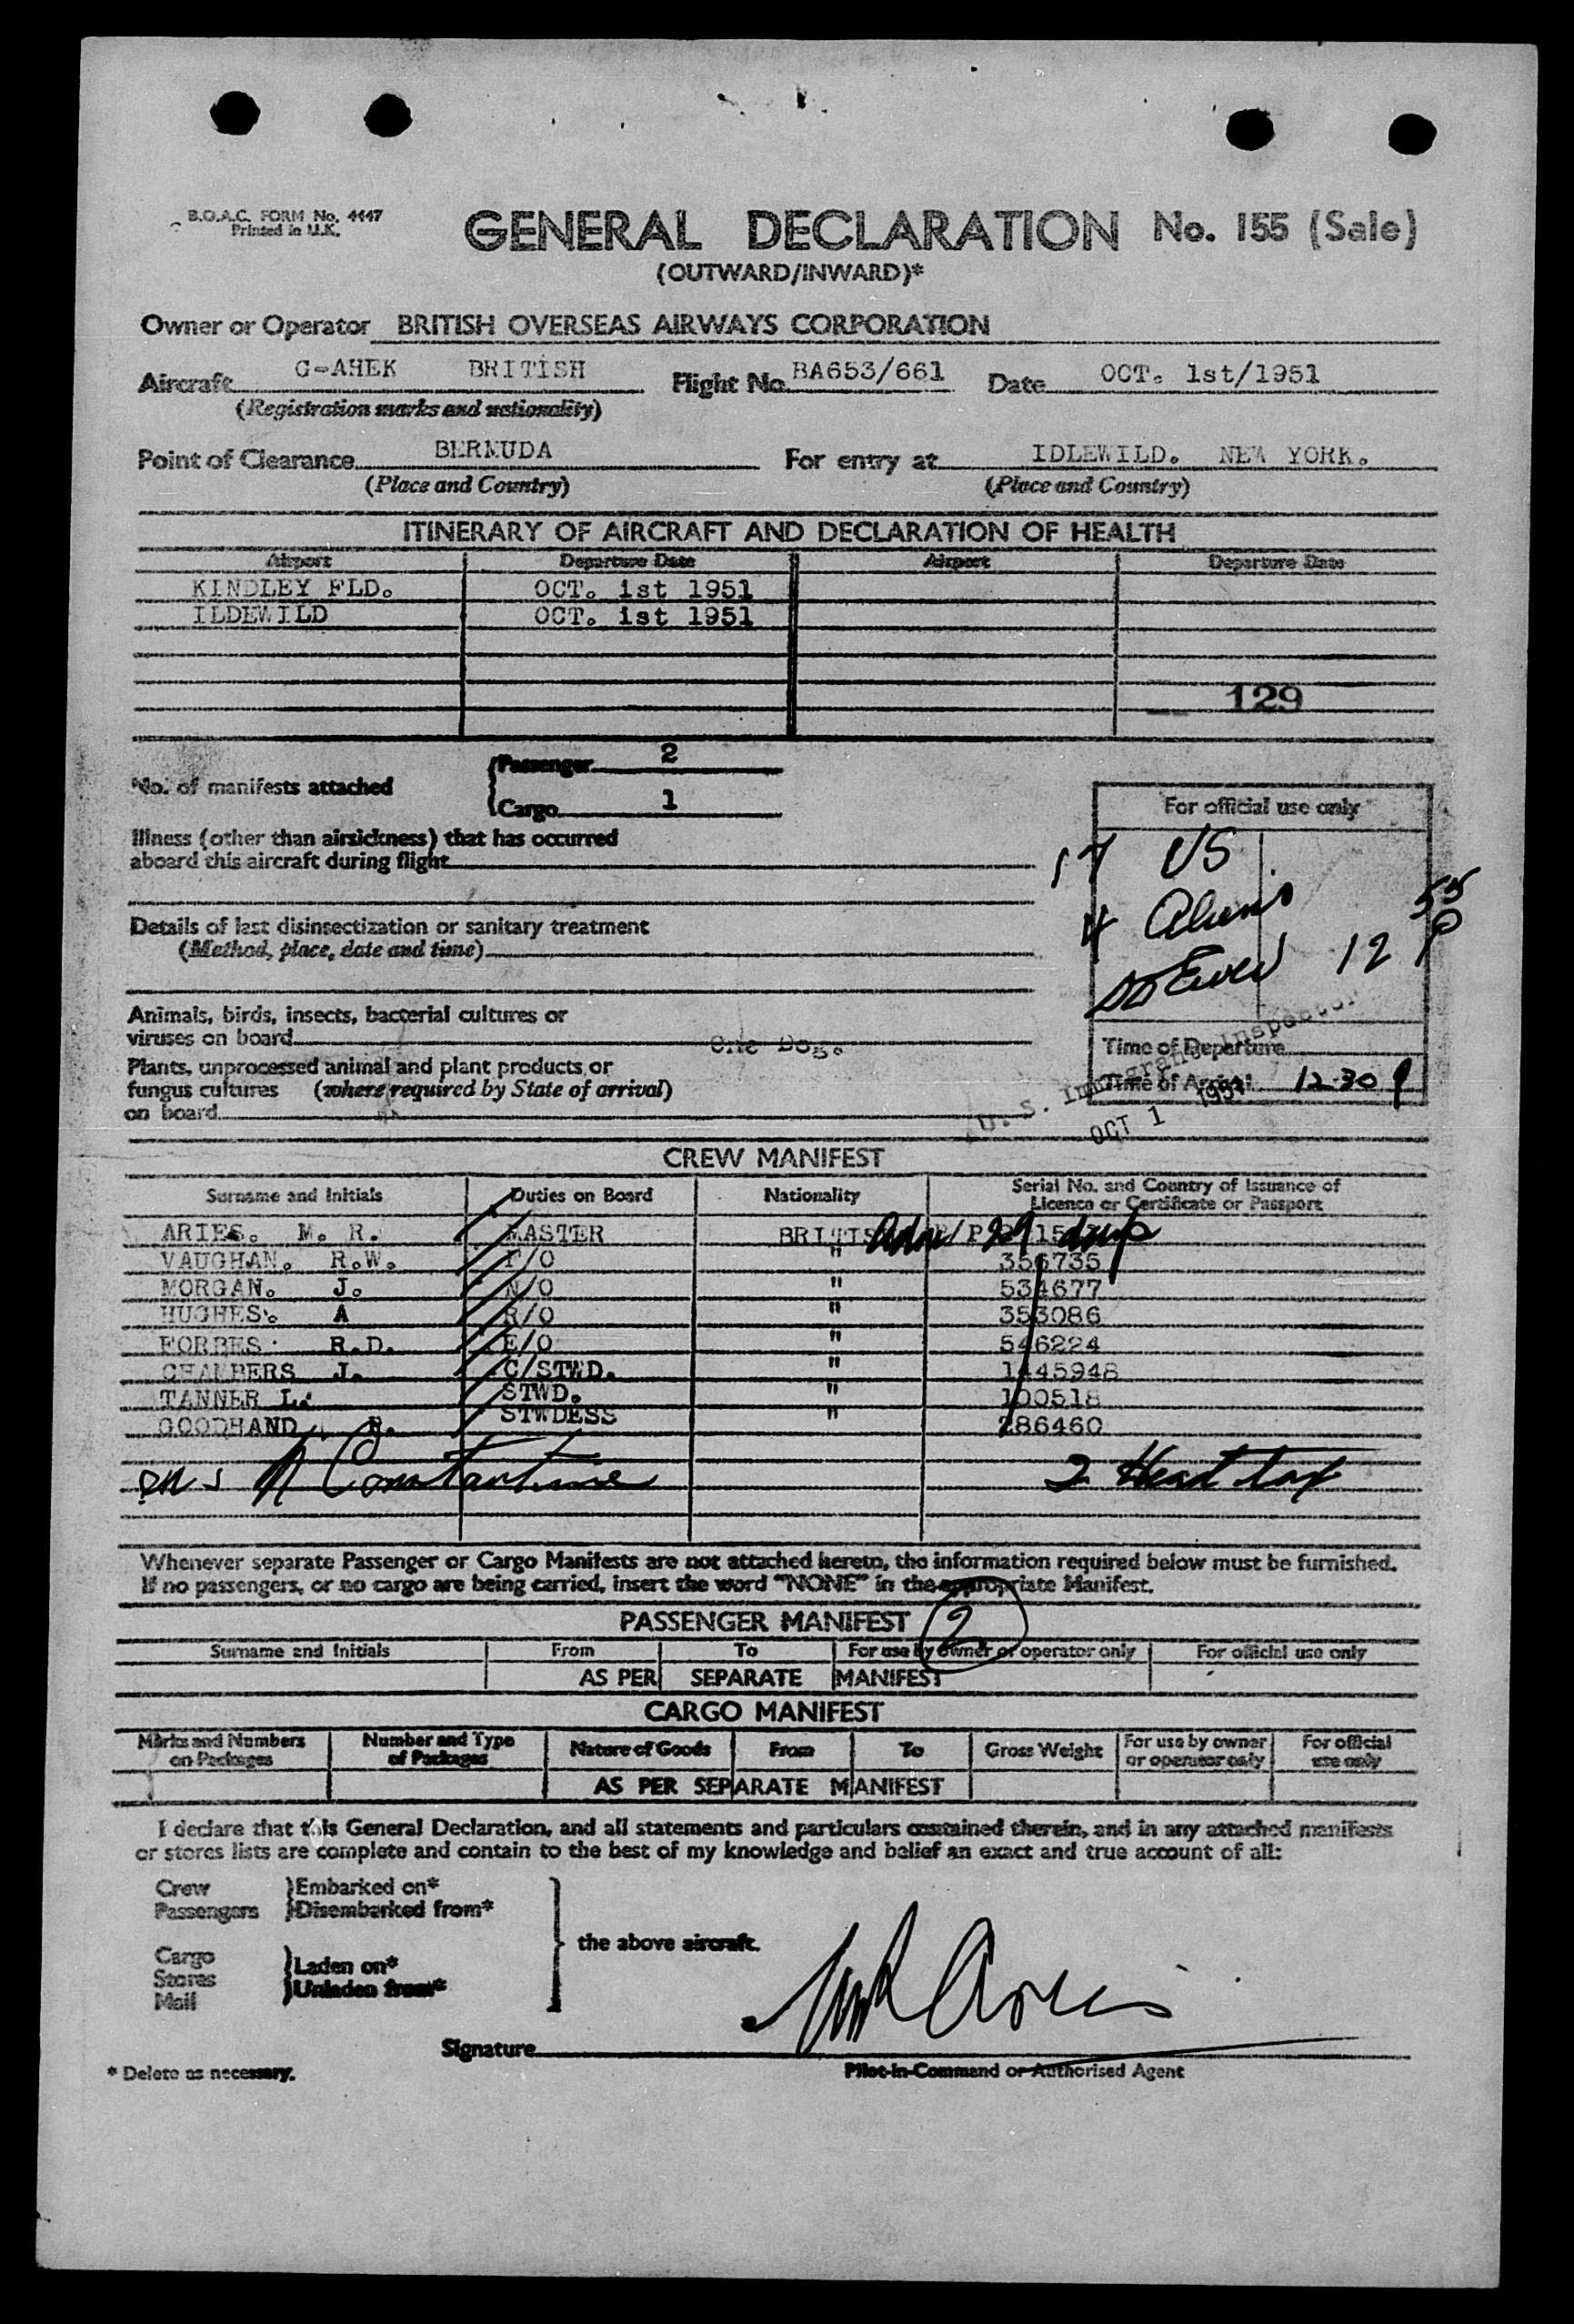 B.O.A.C. FORM No. 4447
Printed in U.K.
GENERAL DECLARATION No. 155 (Sale)
(OUTWARD/INWARD)*
Owner or Operator BRITISH OVERSEAS AIRWAYS CORPORATION
Aircraft G-AHEK BRITISH Flight No. BA653/661 Date OCT. 1st/1951
(Registration marks and nationality)
Point of Clearance BERMUDA For entry at IDLEWILD. NEW YORK.
(Place and Country) (Place and Country)
ITINERARY OF AIRCRAFT AND DECLARATION OF HEALTH
Airport Departure Date Airport Departure Date
KINDLEY FLD. OCT. 1st 1951
ILDEWILD OCT. 1st 1951
129
No. of manifests attached
Passenger 2
Cargo 1
For official use only
Illness (other than airsickness) that has occurred
aboard this aircraft during flight
17 US
4 Aliens
55
12 P
Details of last disinsectization or sanitary treatment
(Method, place, date and time)
Animals, birds, insects, bacterial cultures or
viruses on board One Dog.
Plants, unprocessed animal and plant products or
fungus cultures (where required by State of arrival)
on board
Time of Departure
Time of Arrival 12.30 P
U. S. Immigrant Inspector
OCT 1 1951
CREW MANIFEST
Surname and Initials Duties on Board Nationality Serial No. and Country of Issuance of
Licence or Certificate or Passport
ARIES. M. R. MASTER BRITIS
VAUGHAN. R.W. F/O " 356735
MORGAN. J. N/O " 534677
HUGHES. A R/O " 353086
FORBES R.D. E/O " 546224
CHAMBERS J. C/STWD. " 1445948
TANNER L. STWD. " 100518
GOODHAND R. STWDESS " 286460
Adm 29 days
Constantine
2 Head tax
Whenever separate Passenger or Cargo Manifests are not attached hereto, the information required below must be furnished.
If no passengers, or no cargo are being carried, insert the word "NONE" in the appropriate Manifest.
PASSENGER MANIFEST 2
Surname and Initials From To For use by owner or operator only For official use only
AS PER SEPARATE MANIFEST
CARGO MANIFEST
Marks and Numbers on Packages Number and Type of Packages Nature of Goods From To Gross Weight For use by owner or operator only For official use only
AS PER SEPARATE MANIFEST
I declare that this General Declaration, and all statements and particulars contained therein, and in any attached manifests
or stores lists are complete and contain to the best of my knowledge and belief an exact and true account of all:
Crew
Passengers
Embarked on*
Disembarked from*
Cargo
Stores
Mail
Laden on*
Unladen from*
the above aircraft.
Signature MR Aries
Pilot-in-Command or Authorised Agent
* Delete as necessary.